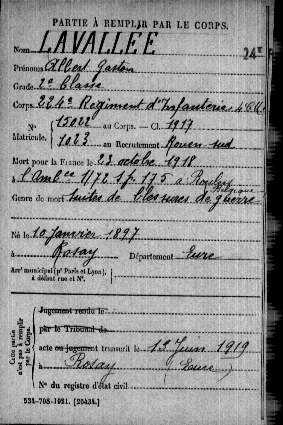 PARTIE À REMPLIR PAR LE CORPS.
Nom LAVALLÉE
24e
Prénoms Albert Gaston
Grade 2e Classe
Corps 224e Régiment d'Infanterie
N° 15022 au Corps. — Cl. 1917
Matricule. 1023 au Recrutement Rouen sud
Mort pour la France le 23 octobre 1918
à l'Amb ce 1/72 S.P. 175 à Roulers Belgique
Genre de mort suites de blessures de guerre
Né le 10 janvier 1897
à Rosay Département Eure
Arr t municipal (p r Paris et Lyon), à défaut rue et N°.
Cette partie n'est pas à remplir par le Corps.
Jugement rendu le
par le Tribunal de
acte ou jugement transcrit le 12 Juin 1919
à Rosay (Eure)
N° du registre d'état civil
534-708-1921. [26434.]